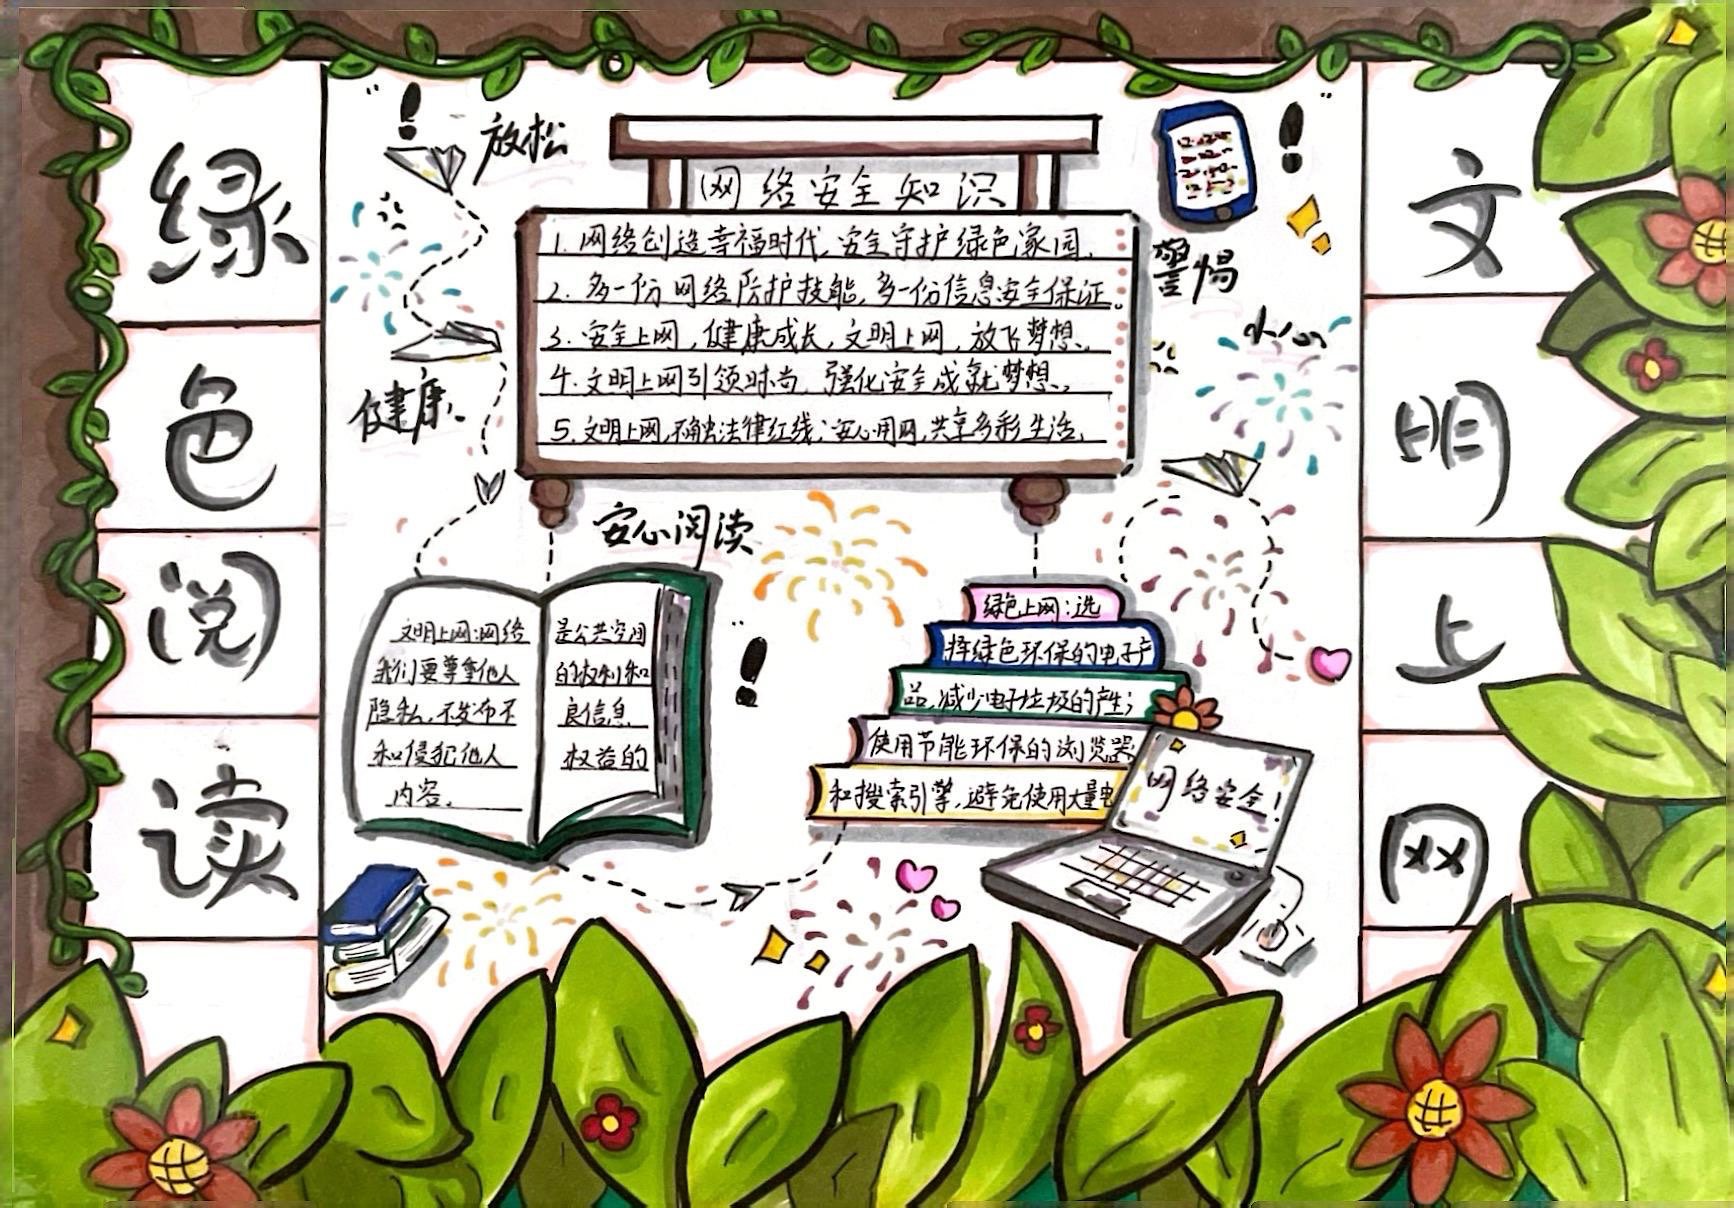 绿
色
阅
读
放松
健康
网络安全知识
1.网络创造幸福时代,安全守护绿色家园。
2.多一份网络防护技能,多一份信息安全保证。
3.安全上网,健康成长,文明上网,放飞梦想。
4.文明上网引领时尚,强化安全成就梦想。
5.文明上网,不触法律红线;安心用网,共享多彩生活。
警惕
小心
安心阅读
文明上网:网络
我们要尊重他人
隐私,不发布不
和侵犯他人
内容。
是公共空间
的权利和
良信息
权益的
绿色上网:选
择绿色环保的电子产
品,减少电子垃圾的产生;
使用节能环保的浏览器
和搜索引擎,避免使用大量电
网络安全!
文
明
上
网